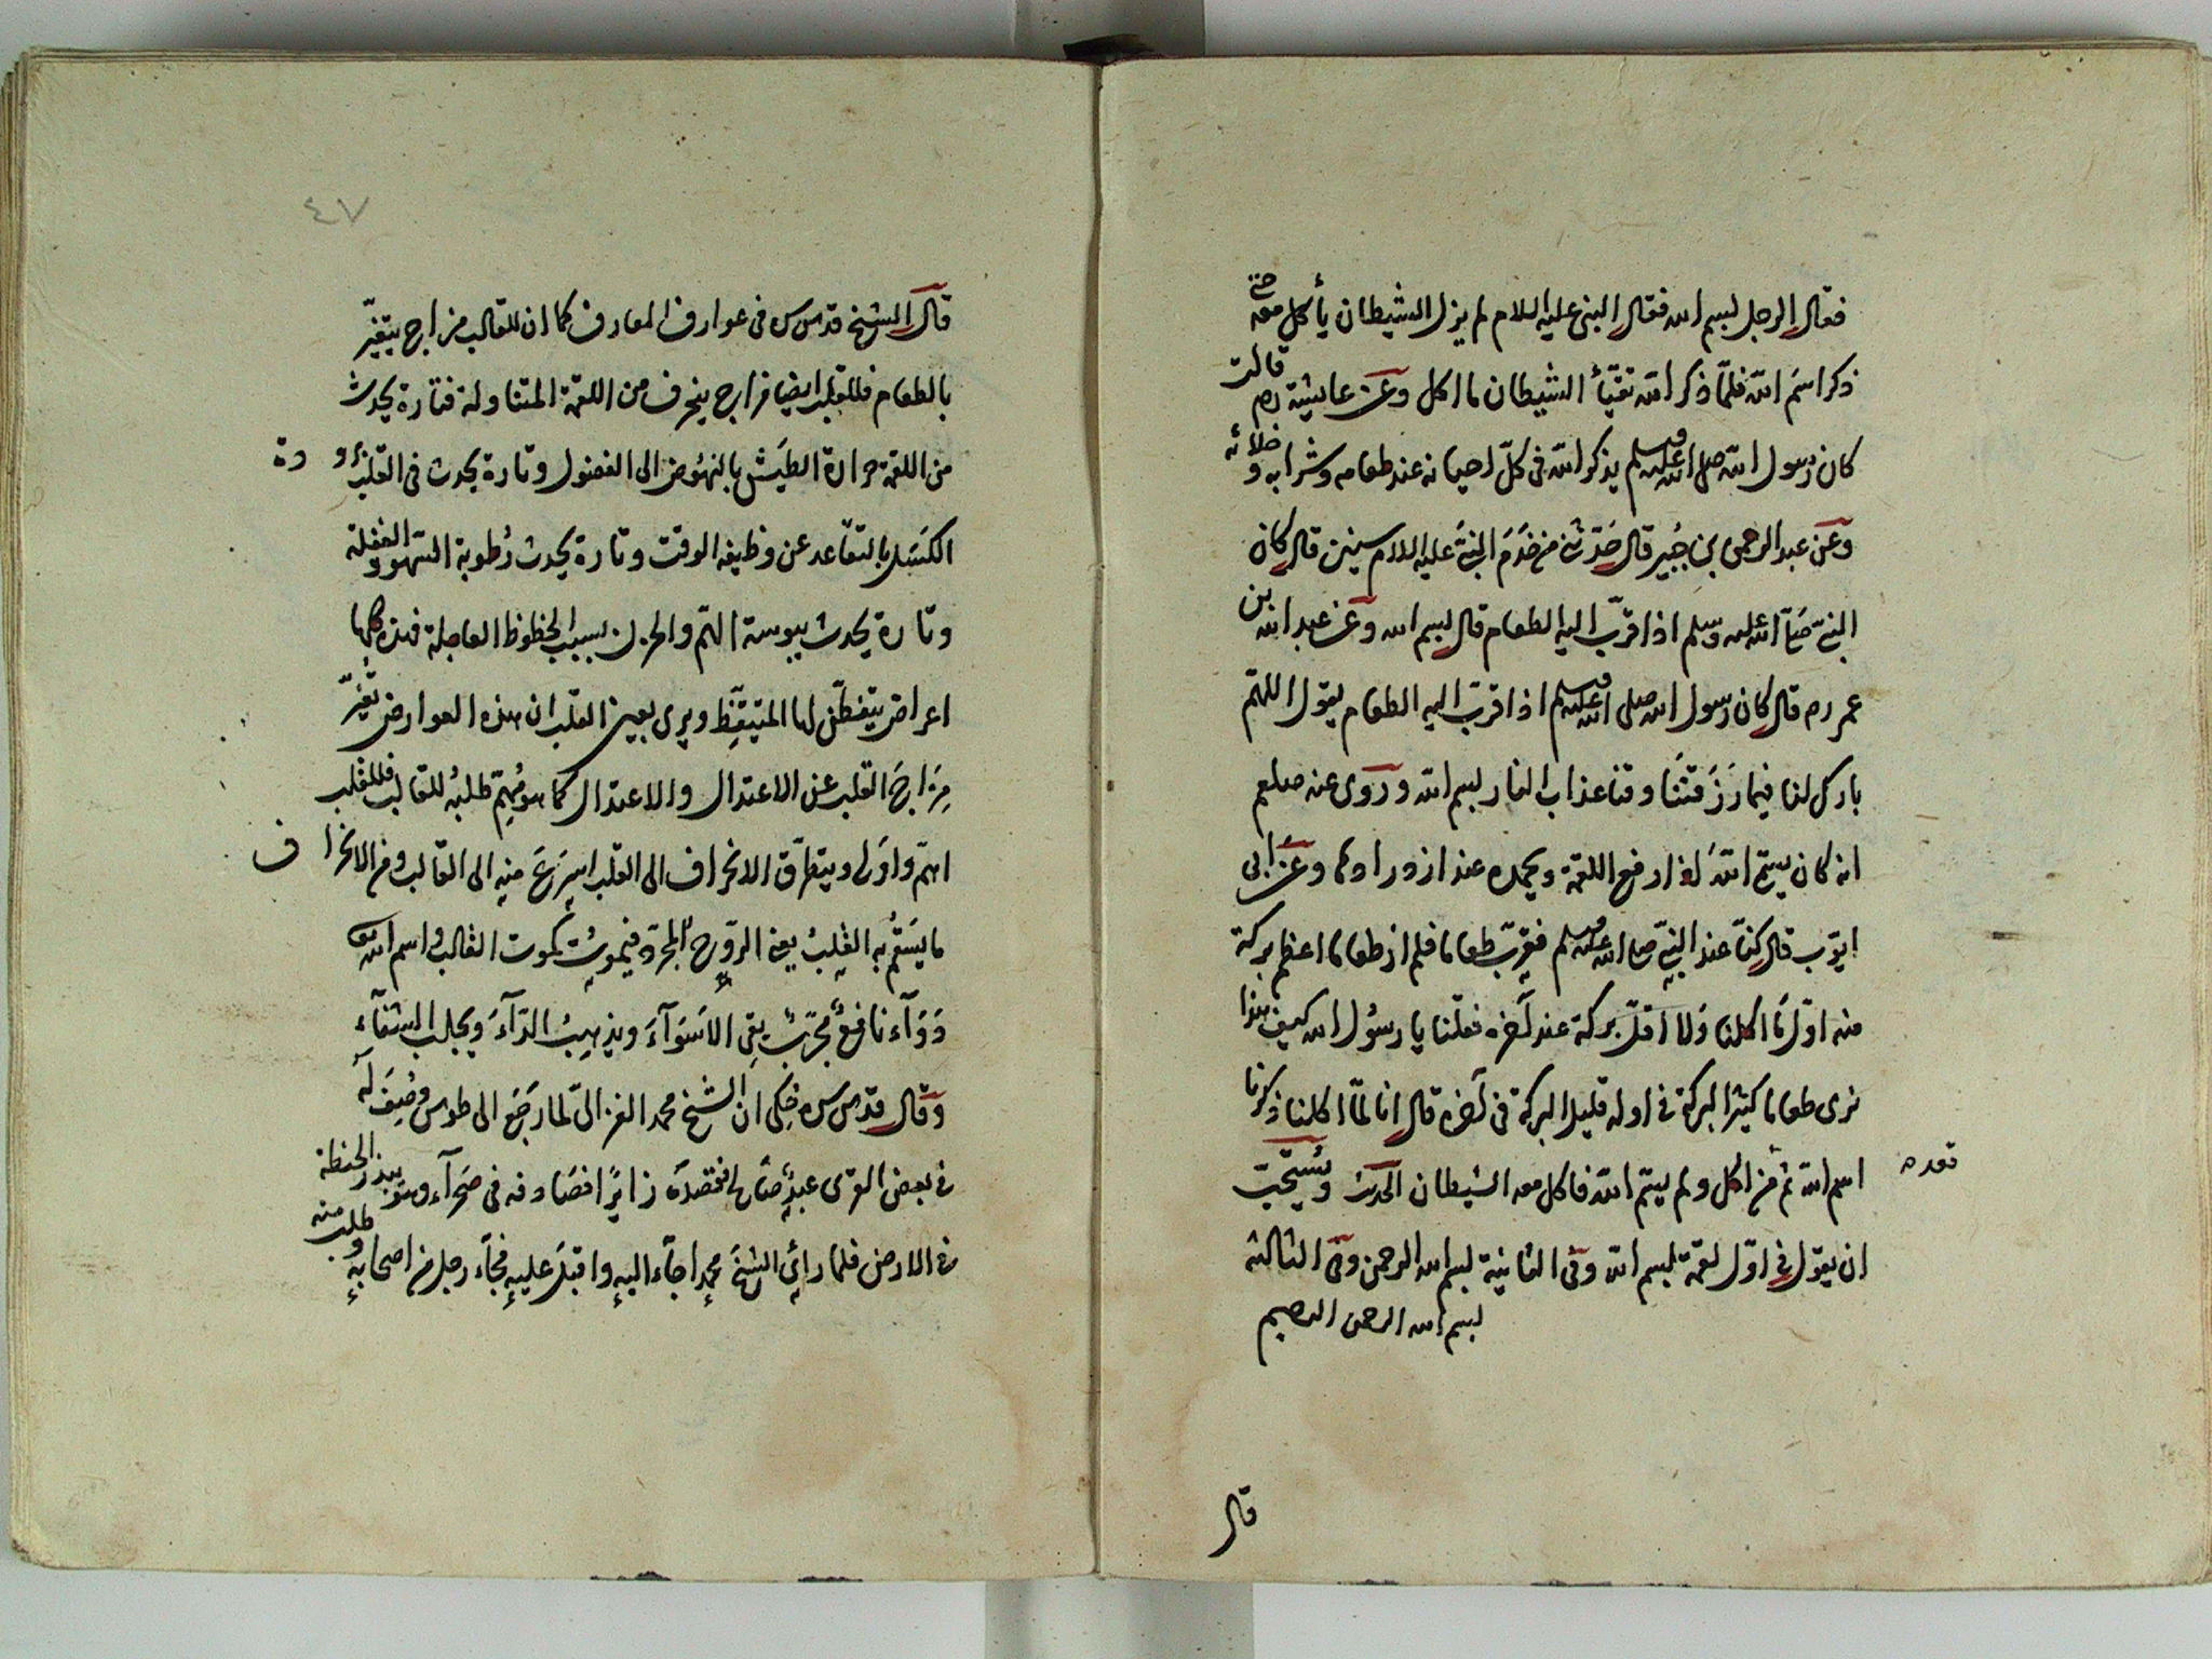 فقال الرجل لبسم الله فقال النبى عليه السلام لم يزل الشيطان يأكل معه حتى
ذكر اسم الله فلمّا ذكر الله تقيّأ الشيطان ما اكل وعن عايشة رم قالت
كان رسول الله صلى الله عليه وسلم يذكر الله فى كلّ احيانه عند طعامه وشرابه وخلائه
وعن عبد الرحمن بن جبير قال حدّثنى من خدم النبىّ عليه السلام سنين قال كان
النبىّ صلى الله عليه وسلم اذا قرّب اليه الطعام قال بسم الله وعن عبد الله بن
عمر رم قال كان رسول الله صلى الله عليه وسلم اذا قرب اليه الطعام يقول اللهمّ
بارك لنا فيما رزقتنا وقنا عذاب النار بسم الله وروى عنه صلعم
انه كان يسمّ الله اذا رفع اللقمة ويحمده عند ازدرادها وعن ابى
ايّوب قال كنّا عند النبىّ صلى الله عليه وسلم فقرّب طعاما فلم ار طعاما اعظم بركة
منه اوّل ما اكلنا ولا اقلّ بركة عند آخره فقلنا يا رسول الله كيف هذا
نرى طعاما كثير البركة فى اوله قليل البركة فى آخره قال انا لمّا اكلنا ذكرنا
اسم الله ثم من اكل ولم يسمّ الله فاكل معه الشيطان الحديث ويستحبّ
قعد ه
ان يقول فى اوّل لقمة بسم الله وفى الثانية بسم الله الرحمن وفى الثالثة
بسم الله الرحمن الرحيم
قال
٤٧
قال الشيخ قدس سره فى عوارف المعارف كما ان للقالب مزاج يتغيّر
بالطعام فللقلب ايضا مزاج ينحرف من اللقمة المتناولة فتارة يحدث
من اللقمة حرارة الطيش بالنهوض الى الفضول وتارة يحدث فى القلب برودة
الكسل بالتقاعد عن وظيفة الوقت وتارة يحدث رطوبة السّهو والغفلة
وتارة يحدث يبوسة الهمّ والحزن بسبب الحظوظ العاجلة فهذه كلها
اعراض يتفطّن لها المتيقّظ ويرى بعين القلب ان هذه العوارض تغيّر
مزاج القلب عن الاعتدال والاعتدال كما هو مهمّ طلبه للقالب فللقلب
اهمّ واولى ويتطرّق الانحراف الى القلب اسرع منه الى القالب ومن الانحراف
ما يسقم به القلب يعنى الروح المجرّد فيموت كموت القالب واسم الله تعالى
دوآء نافع مجرّب يقى الاسوآء ويذهب الدّآء ويجلب الشفآء
وقال قدس سره حكى ان الشيخ محمد الغزالىّ لما رجع الى طوس وصف له
فى بعض القرى عبد صالح فقصده زائرا فصادفه فى صحرآء وهو يبذر الحنطة
فى الارض فلما راى الشيخ محمدا جآء اليه واقبل عليه فجآء رجل من اصحابه وطلب منه